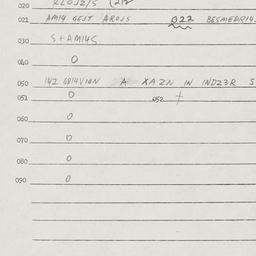 020
021 AM14 GEST AROJS 022 BESMEDR14
030 S+AM14S
040 0
050 IN2 GB14V10N A XAZN IN INDZ3R S
051 0 052 +
060 0
070 0
080 0
090 0